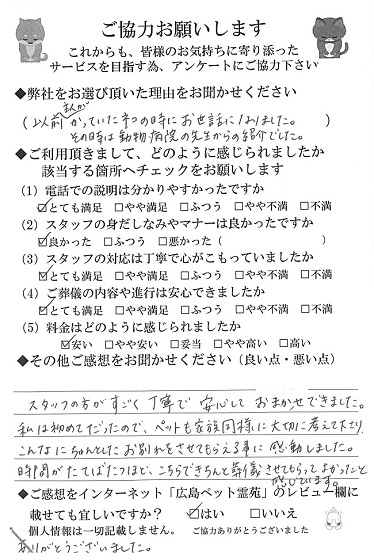 ご協力お願いします
これからも、皆様のお気持ちに寄り添った
サービスを目指す為、アンケートにご協力下さい
◆弊社をお選び頂いた理由をお聞かせください
(以前 かっていたネコの時にお世話になりました。)
その時は動物病院の先生からの紹介でした。
◆ご利用頂きまして、どのように感じられましたか
該当する箇所へチェックをお願いします
(1) 電話での説明は分かりやすかったですか
☑とても満足 □やや満足 □ふつう □やや不満 □不満
(2) スタッフの身だしなみやマナーは良かったですか
☑良かった □ふつう □悪かった( )
(3) スタッフの対応は丁寧で心がこもっていましたか
☑とても満足 □やや満足 □ふつう □やや不満 □不満
(4) ご葬儀の内容や進行は安心できましたか
☑とても満足 □やや満足 □ふつう □やや不満 □不満
(5) 料金はどのように感じられましたか
☑安い □やや安い □妥当 □やや高い □高い
◆その他ご感想をお聞かせください(良い点・悪い点)
スタッフの方がすごく丁寧で安心しておまかせできました。
私は初めてだったので、ペットも家族同様に大切に考えて下さり
こんなにちゃんとしたお別れをさせてもらえる事に感動しました。
時間がたてばたつほど、こちらできちんと葬儀させてもらってよかったと
感じています。
◆ご感想をインターネット「広島ペット霊苑」のレビュー欄に
載せても宜しいですか? ☑はい □いいえ
個人情報は一切記載しません。 ご協力ありがとうございました
ありがとうございました。